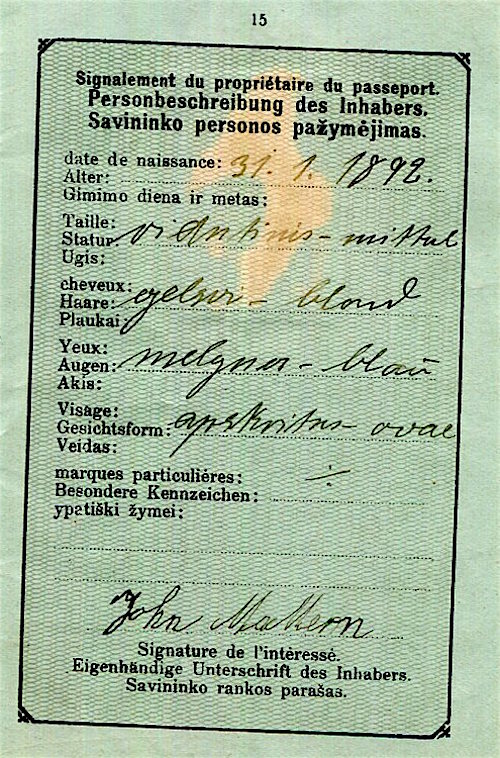 15
Signalement du propriétaire du passeport.
Personbeschreibung des Inhabers.
Savininko personos pažymėjimas.
date de naissance: 31. 1. 1892.
Alter:
Gimimo diena ir metas:
Taille:
Statur vidutinis - mittel
Ugis:
cheveux:
Haare: gelsvi - blond
Plaukai:
Yeux:
Augen: melynos - blau
Akis:
Visage:
Gesichtsform: apskritas - oval
Veidas:
marques particuliéres: ÷
Besondere Kennzeichen:
ypatiški žymei:
John
Signature de l'intèressé.
Eigenhändige Unterschrift des Inhabers.
Savininko rankos parašas.